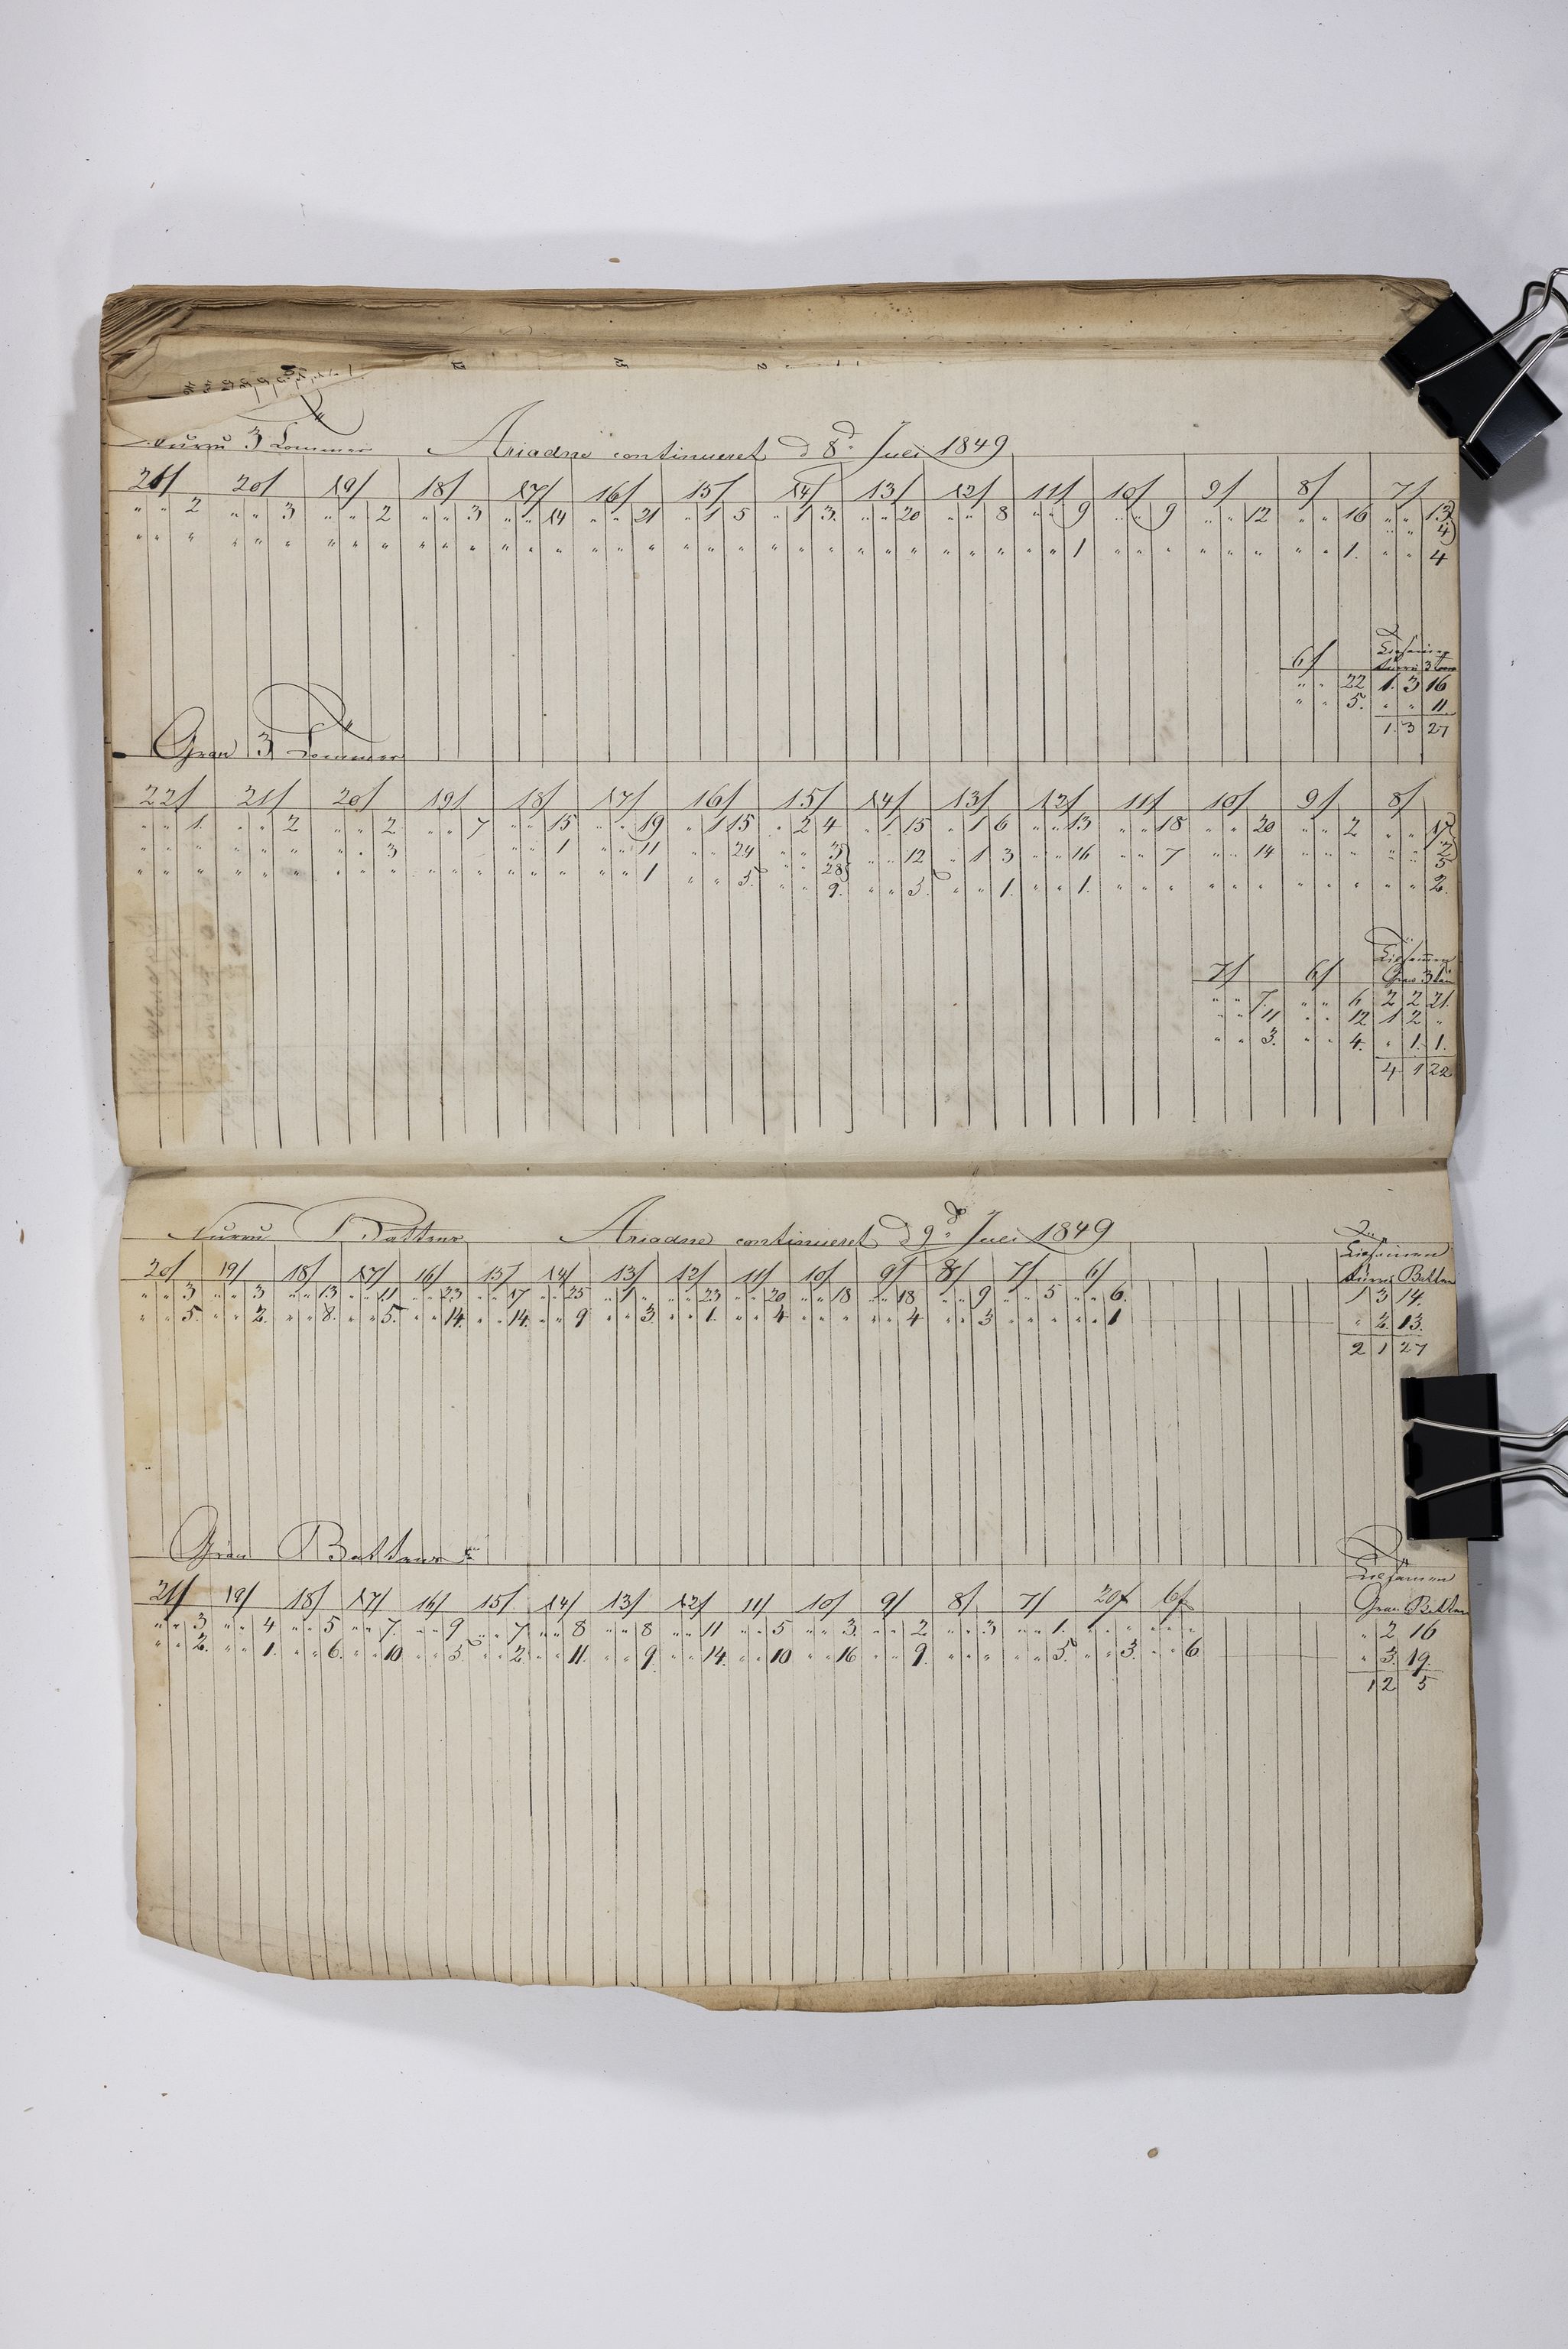 Furru 3 Tommer Ariadne continueret d 8de Juli 1849
21/ 20/ 19/ 18/ 17/ 16/ 15/ 14/ 13/ 12/ 11/ 10/ 9/ 8/ 7/
" " 2 " " 3 " " 2 " " 3 " " 14 " " 21 " 1 5 " 1 3. " " 20 " " 8 " " 9 " " 9 " " 12 " " 16 " " 13
" " 4
" " " " " " " " " " " " " " " " " " " " " " " " " " " " " " " " 1 " " " " " " " " 1. " " 4
6/ Furru 3 Tom
" " 22 1. 3 16
" " 5. " " 11
1. 3 27
Gran 3 Tommer
22/ 21/ 20/ 19/ 18/ 17/ 16/ 15/ 14/ 13/ 12/ 11/ 10/ 9/ 8/
" " 1. " " 2 " " 2 " " 7 " " 15 " " 19 " 1 15 " 2 4 " 1 15 " 1 6 " " 13 " " 18 " " 20 " " 2 " " 17
" " " " " " " " 3 " " 1 " " 11 " " 24 " " 3 " " 12 " 1 3 " " 16 " " 7 " " 14 " " " " "
" " 28
" " " " " " " " " " " " " " " " " 1 " " 5. " " 9. " " 5. " " 1. " " 1. " " " " " " " " " " " 2.
7/ 6/ Gran 3 Tom
" " 7. " " 6 2 2 21.
" " 11 " " 12 1 2 "
" " 3. " " 4. " 1. 1.
4 1 22
Furru Battens Ariadne continueret d 9de Juli 1849
20/ 19/ 18/ 17/ 16/ 15/ 14/ 13/ 12/ 11/ 10/ 9/ 8/ 7/ 6/ Furru Batten
" " 3 " " 3 " " 13 " " 11 " " 23 " " 17 " " 25 " 1 " " " 23 " " 20 " " 18 " " 18 " " 9 " " 5 " " 6. 1 3 14.
" " 5. " " 2. " " 8. " " 5. " " 14. " " 14. " " 9 " " 3. " " 1. " " 4 " " " " " 4 " " 3 " " " " " 1 " 2. 13.
2 1 27
Gran Battens
21/ 19/ 18/ 17/ 16/ 15/ 14/ 13/ 12/ 11/ 10/ 9/ 8/ 7/ 20/ 6/ Gran Batten
" " 3 " " 4 " " 5 " " 7. " " 9 " " 7 " " 8 " " 8 " " 11 " " 5 " " 3. " " 2 " " 3 " " 1. " " " " " " " 2 16
" " 2. " " 1. " " 6. " " 10 " " 5. " " 2. " " 11. " " 9. " " 14. " " 10 " " 16 " " 9. " " " " " 5. " " 3. " " 6 " 3. 19.
1 2 5